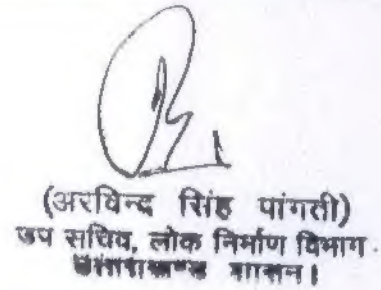 (अरविन्द सिंह पांगती)
उप सचिव, लोक निर्माण विभाग
उत्तराखण्ड शासन।